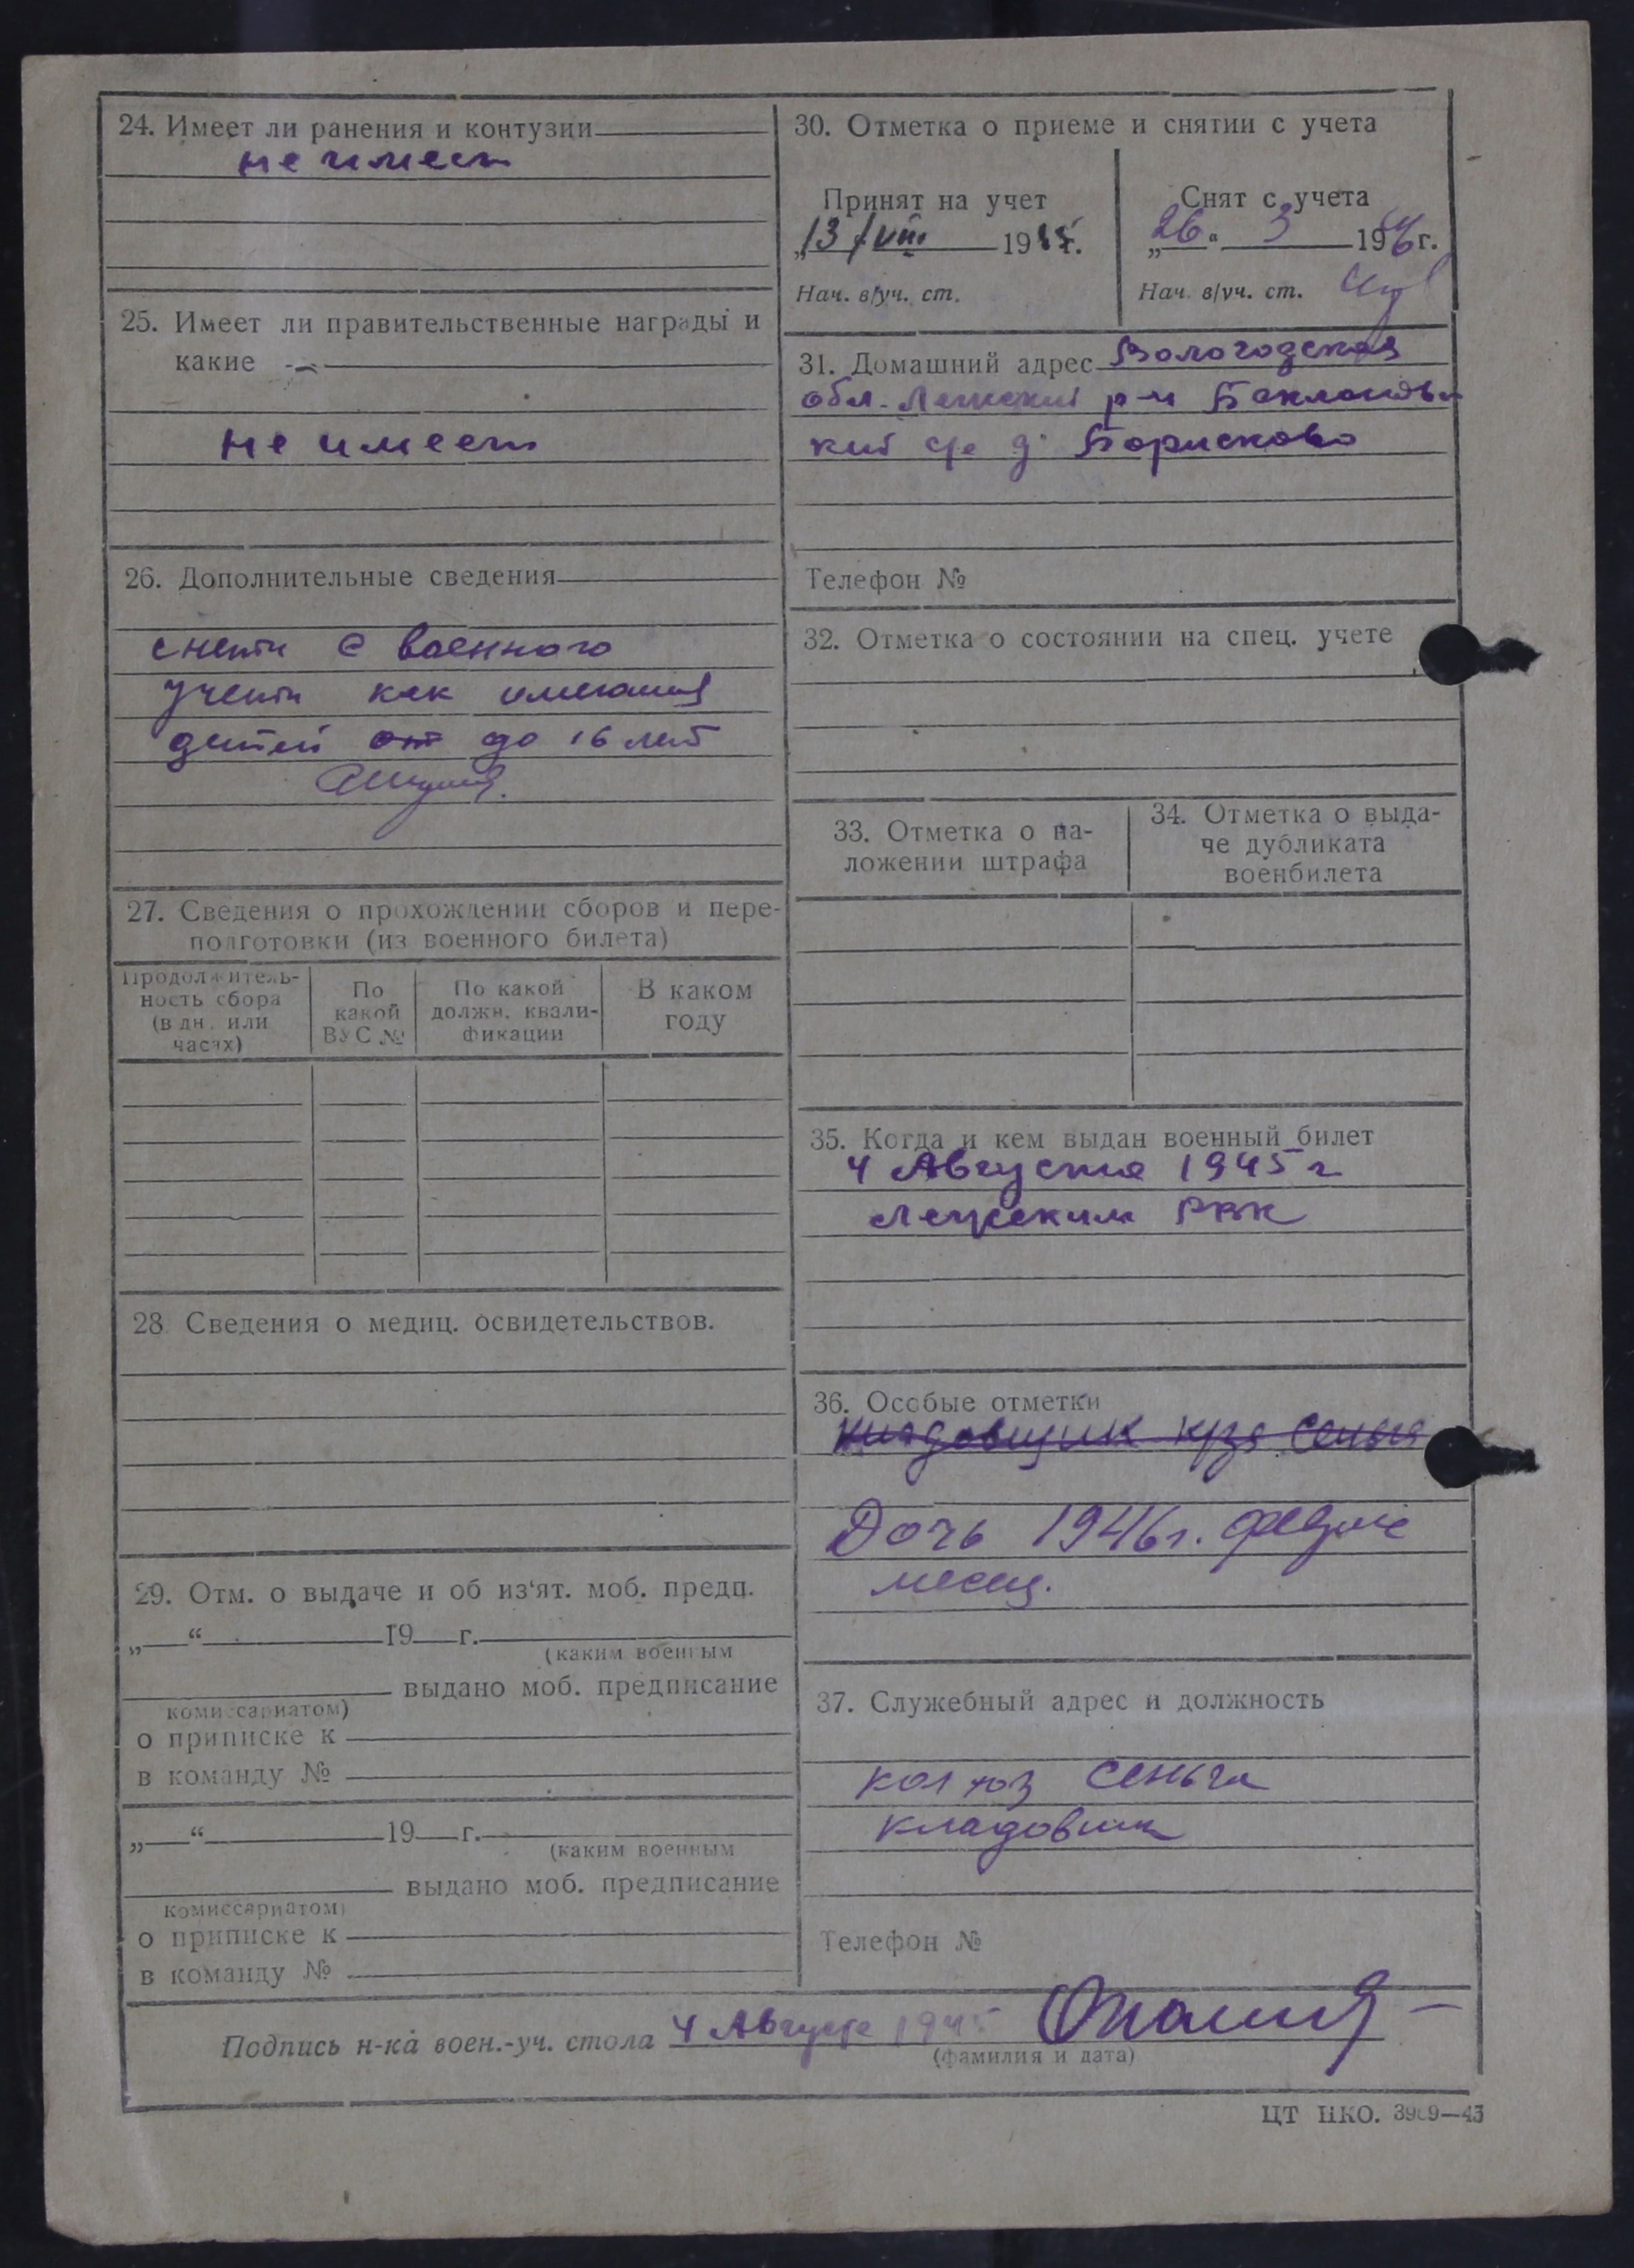 24. Имеет ли ранения и контузии
не имеет
25. Имеет ли правительственные награды и
какие
не имеет
26. Дополнительные сведения
снять с военного
учета как имеющая
детей от до 16 лет
27. Сведения о прохождении сборов и пере-
подготовки (из военного билета)
Продолжитель-
ность сбора
(в дн. или
часах)
По
какой
ВУС №
По какой
должн. квали-
фикации
В каком
году
28. Сведения о медиц. освидетельствов.
29. Отм. о выдаче и об из‘ят. моб. предп.
„ “ 19 г.
(каким военным
выдано моб. предписание
комиссариатом)
о приписке к
в команду №
„ “ 19 г.
(каким военным
выдано моб. предписание
комиссариатом)
о приписке к
в команду №
30. Отметка о приеме и снятии с учета
Принят на учет
„13/VIII 1945г.
Нач. в/уч. ст.
Снят с учета
„26“ 3 1946г.
Нач. в/уч. ст.
31. Домашний адрес Вологодская
обл. р-н
кий с/с д. Борисково
Телефон №
32. Отметка о состоянии на спец. учете
33. Отметка о на-
ложении штрафа
34. Отметка о выда-
че дубликата
военбилета
35. Когда и кем выдан военный билет
4 Августа 1945 г
РВК
36. Особые отметки
Кладовщик к/за Сеньга
Дочь 1946г.
месяц.
37. Служебный адрес и должность
колхоз Сеньга
кладовщик
Телефон №
Подпись н-ка воен.-уч. стола 4 Августа 1945
(фамилия и дата)
ЦТ НКО. 3969—43